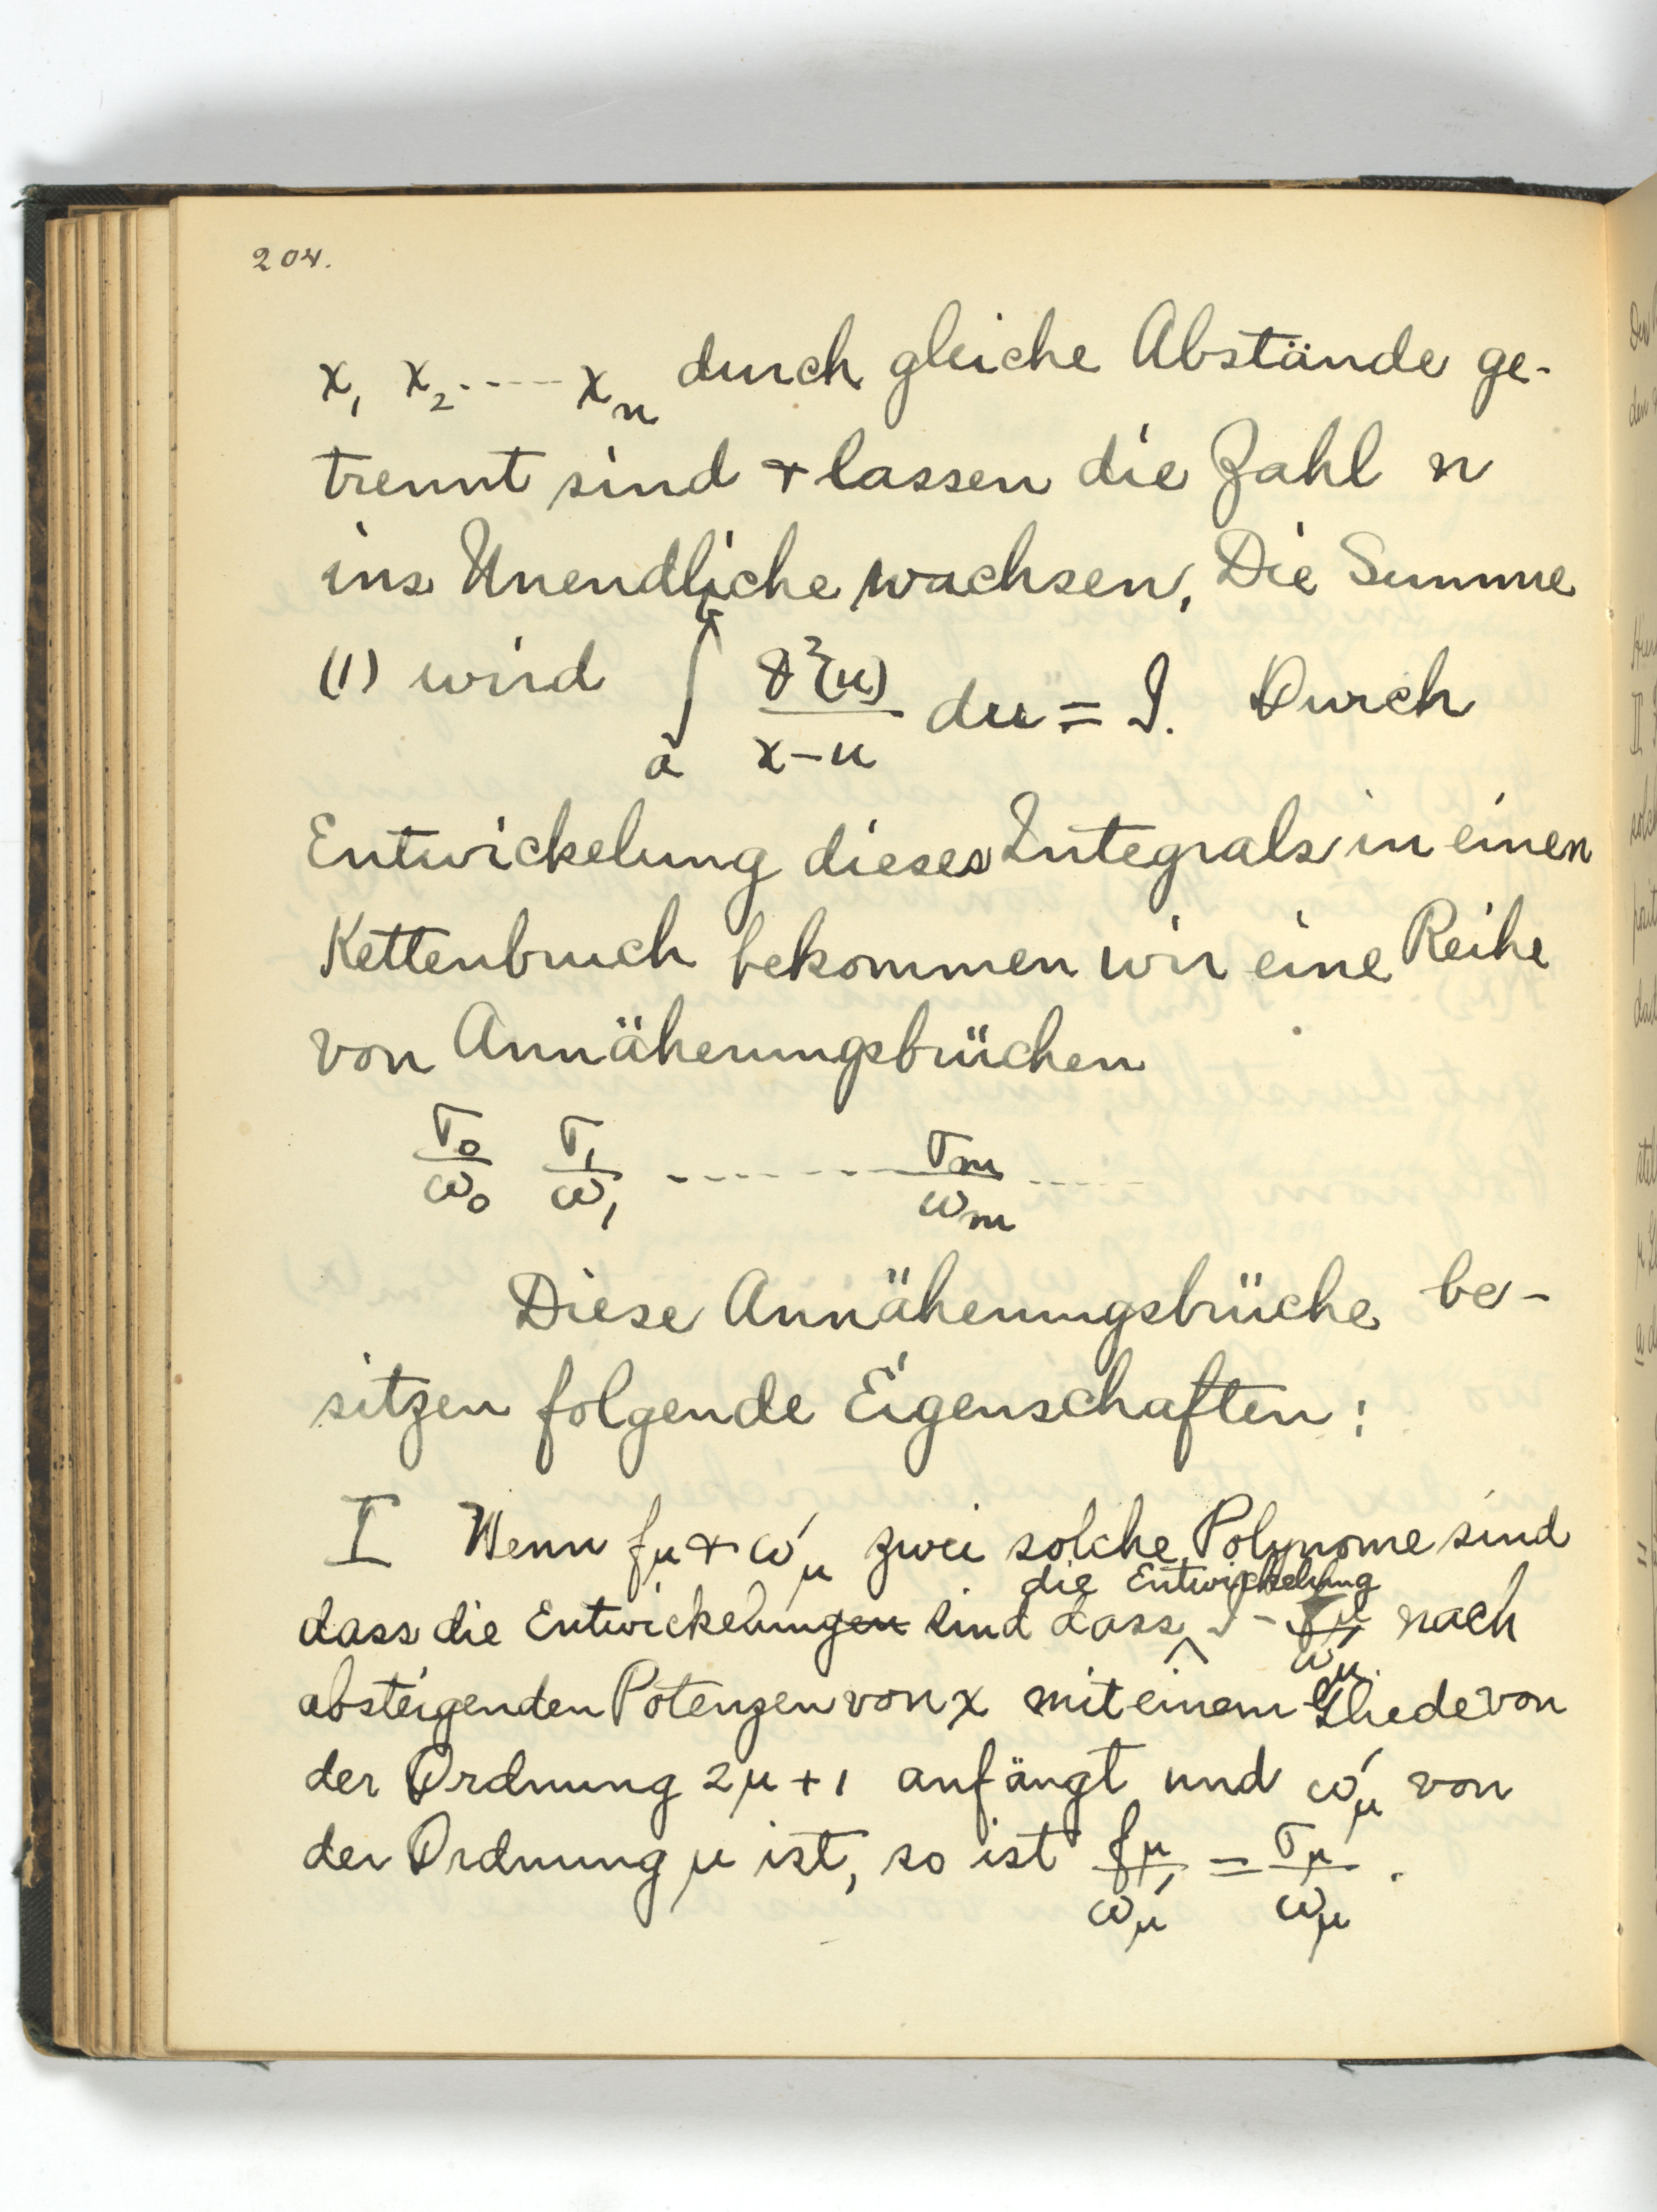 204.
x₁ x₂ ----- xₙ durch gleiche Abstände ge-
trennt sind + lassen die Zahl n
ins Unendliche wachsen, Die Summe
(1) wird ∫ₐᵇ ϑ²(u)/(x-u) du = J. Durch
Entwickelung dieses Integrals in einen
Kettenbruch bekommen wir eine Reihe
von Annäherungsbrüchen
σ₀/ω₀ σ₁/ω₁ --------- σₘ/ωₘ -----
Diese Annäherungsbrüche be-
sitzen folgende Eigenschaften:
I Wenn fμ + ω′μ zwei solche Polynome sind
die Entwickelung
dass die Entwickelungen sind dass ^ J - fμ/ω′μ nach
absteigenden Potenzen von x mit einem Gliede von
der Ordnung 2μ+1 anfängt und ω′μ von
der Ordnung μ ist, so ist fμ/ω′μ = σμ/ωμ.